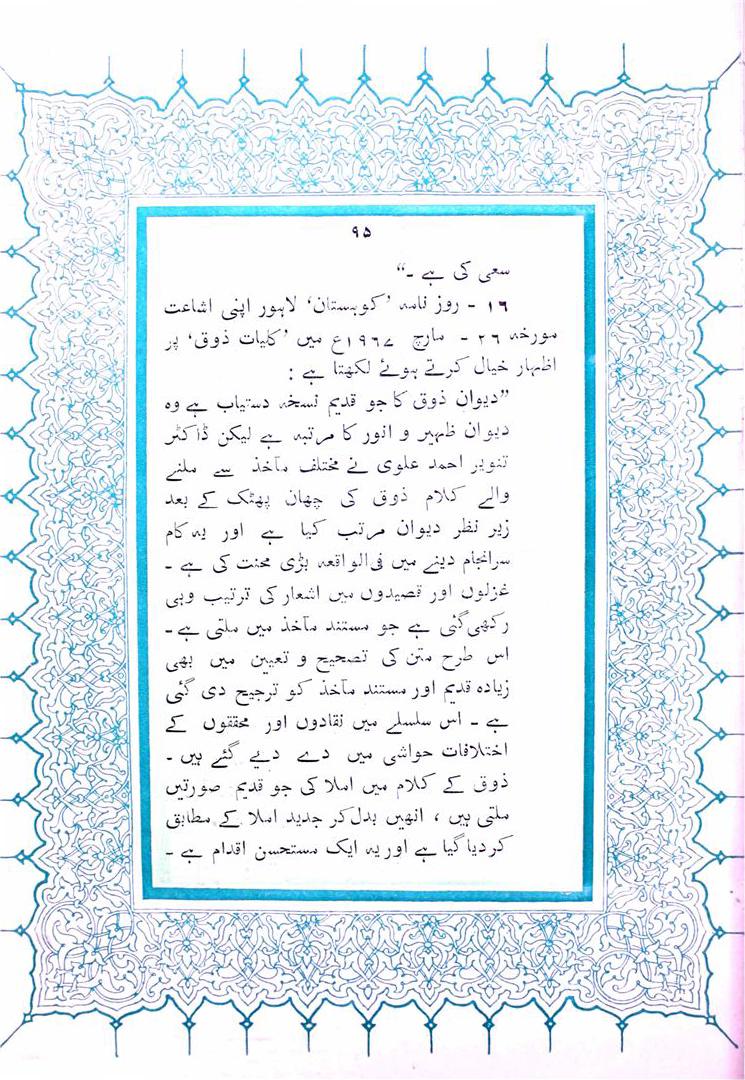 ۹۵
سعی کی ہے ۔“
۱٦ - روز نامہ ’کوہستان‘ لاہور اپنی اشاعت
مورخہ ۲٦ - مارچ ۱۹٦۷ع میں ’کلیات ذوق‘ پر
اظہار خیال کرتے ہوئے لکھتا ہے :
”دیوان ذوق کا جو قدیم نسخہ دستیاب ہے وہ
دیوان ظہیر و انور کا مرتبہ ہے لیکن ڈاکٹر
تنویر احمد علوی نے مختلف مآخذ سے ملنے
والے کلام ذوق کی چھان پھٹک کے بعد
زیر نظر دیوان مرتب کیا ہے اور یہ کام
سرانجام دینے میں فی‌الواقعہ بڑی محنت کی ہے ۔
غزلوں اور قصیدوں میں اشعار کی ترتیب وہی
رکھی گئی ہے جو مستند مآخذ میں ملتی ہے ۔
اس طرح متن کی تصحیح و تعیین میں بھی
زیادہ قدیم اور مستند مآخذ کو ترجیح دی گئی
ہے ۔ اس سلسلے میں نقادوں اور محققوں کے
اختلافات حواشی میں دے دیے گئے ہیں ۔
ذوق کے کلام میں املا کی جو قدیم صورتیں
ملتی ہیں ، انھیں بدل کر جدید املا کے مطابق
کر دیا گیا ہے اور یہ ایک مستحسن اقدام ہے ۔